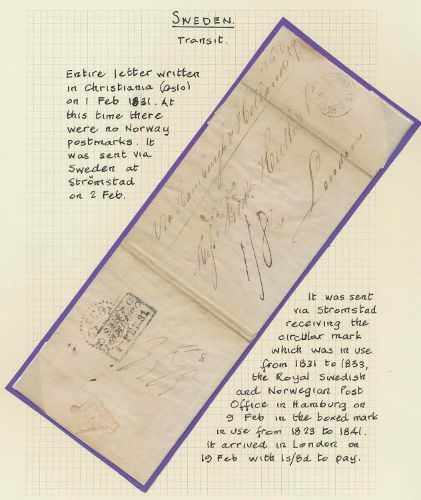 SWEDEN.
Transit.
Entire letter written
in Christiania (Oslo)
on 1 Feb 1831. At
this time there
were no Norway
postmarks. It
was sent via
Sweden at
Strömstad
on 2 Feb.
Via Hamburgh & Holland
London
1/8
It was sent
via Stromstad
receiving the
circular mark
which was in use
from 1831 to 1833,
the Royal Swedish
and Norwegian Post
Office in Hamburg on
9 Feb in the boxed mark
in use from 1823 to 1841.
It arrived in London on
19 Feb with 1s/8d to pay.